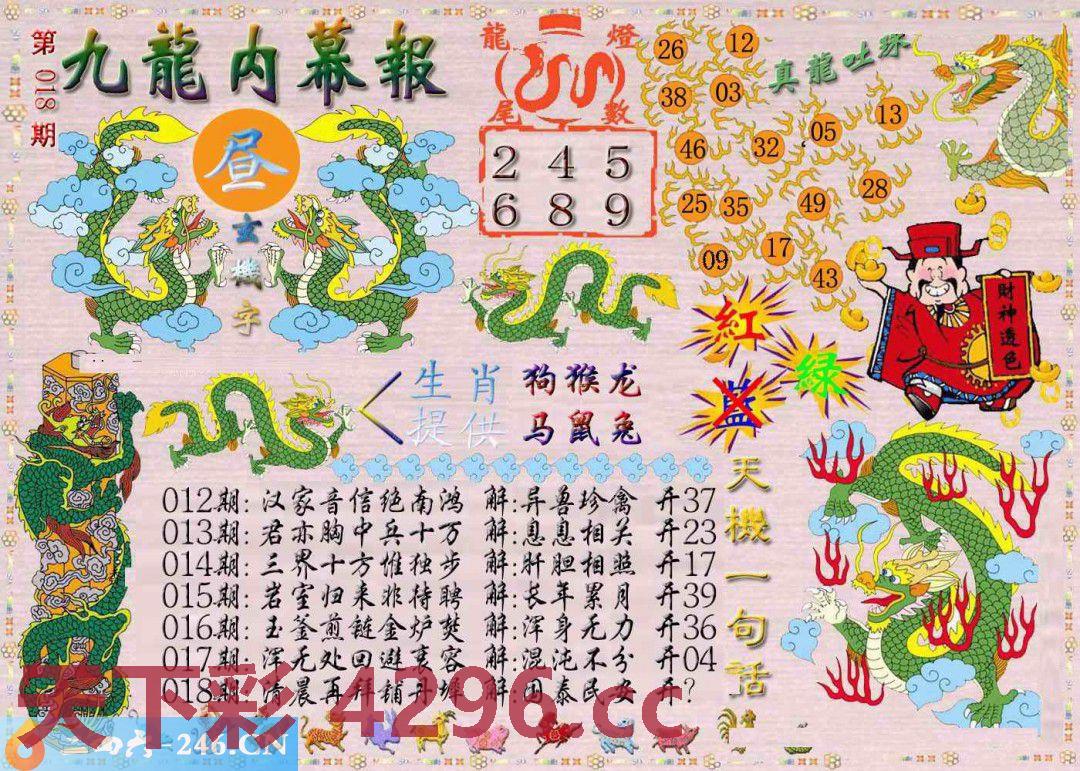 第018期
九龍内幕報
昼
玄機字
龍燈
尾數
2 4 5
6 8 9
26 12
38 03
46 32 05 13
25 35 49 28
09 17 43
真龍吐珠
紅
蓝
绿
財神透色
生肖
提供
狗猴龙
马鼠兔
012期: 汉家音信绝南鸿 解:异兽珍禽 开37
013期: 君亦胸中兵十万 解:息息相关 开23
014期: 三界十方惟独步 解:肝胆相照 开17
015期: 岩室归来非待聘 解:长年累月 开39
016期: 玉釜煎链金炉焚 解:浑身无力 开36
017期: 浑无处回避衰容 解:混沌不分 开04
018期: 清晨再拜铺丹墀 解:国泰民安 开?
天機一句话
天下彩 4296.cc
=246.CN